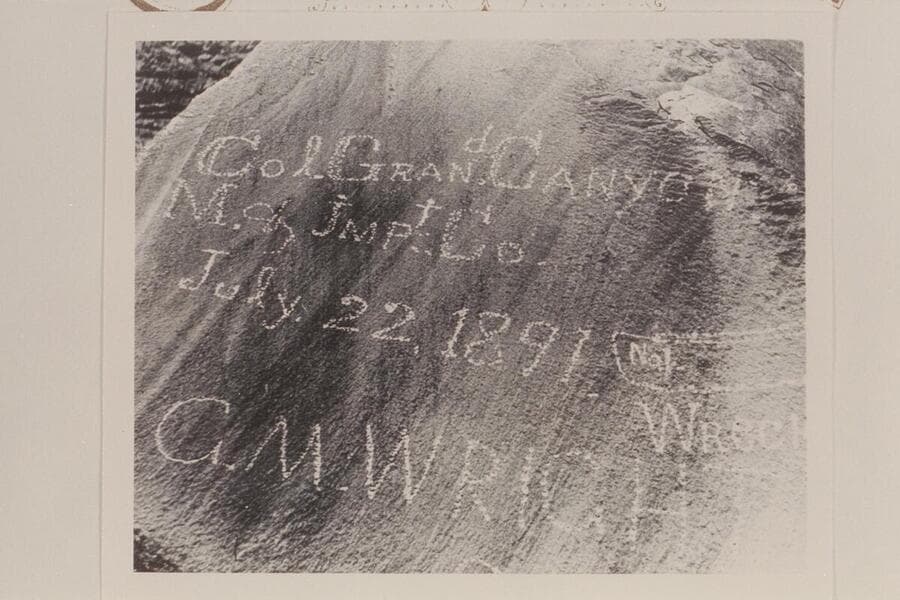 Col. Grand Canyon
M. & Impt. Co.
July. 22, 1891
No 1
Wreck
G.M. WRIGHT